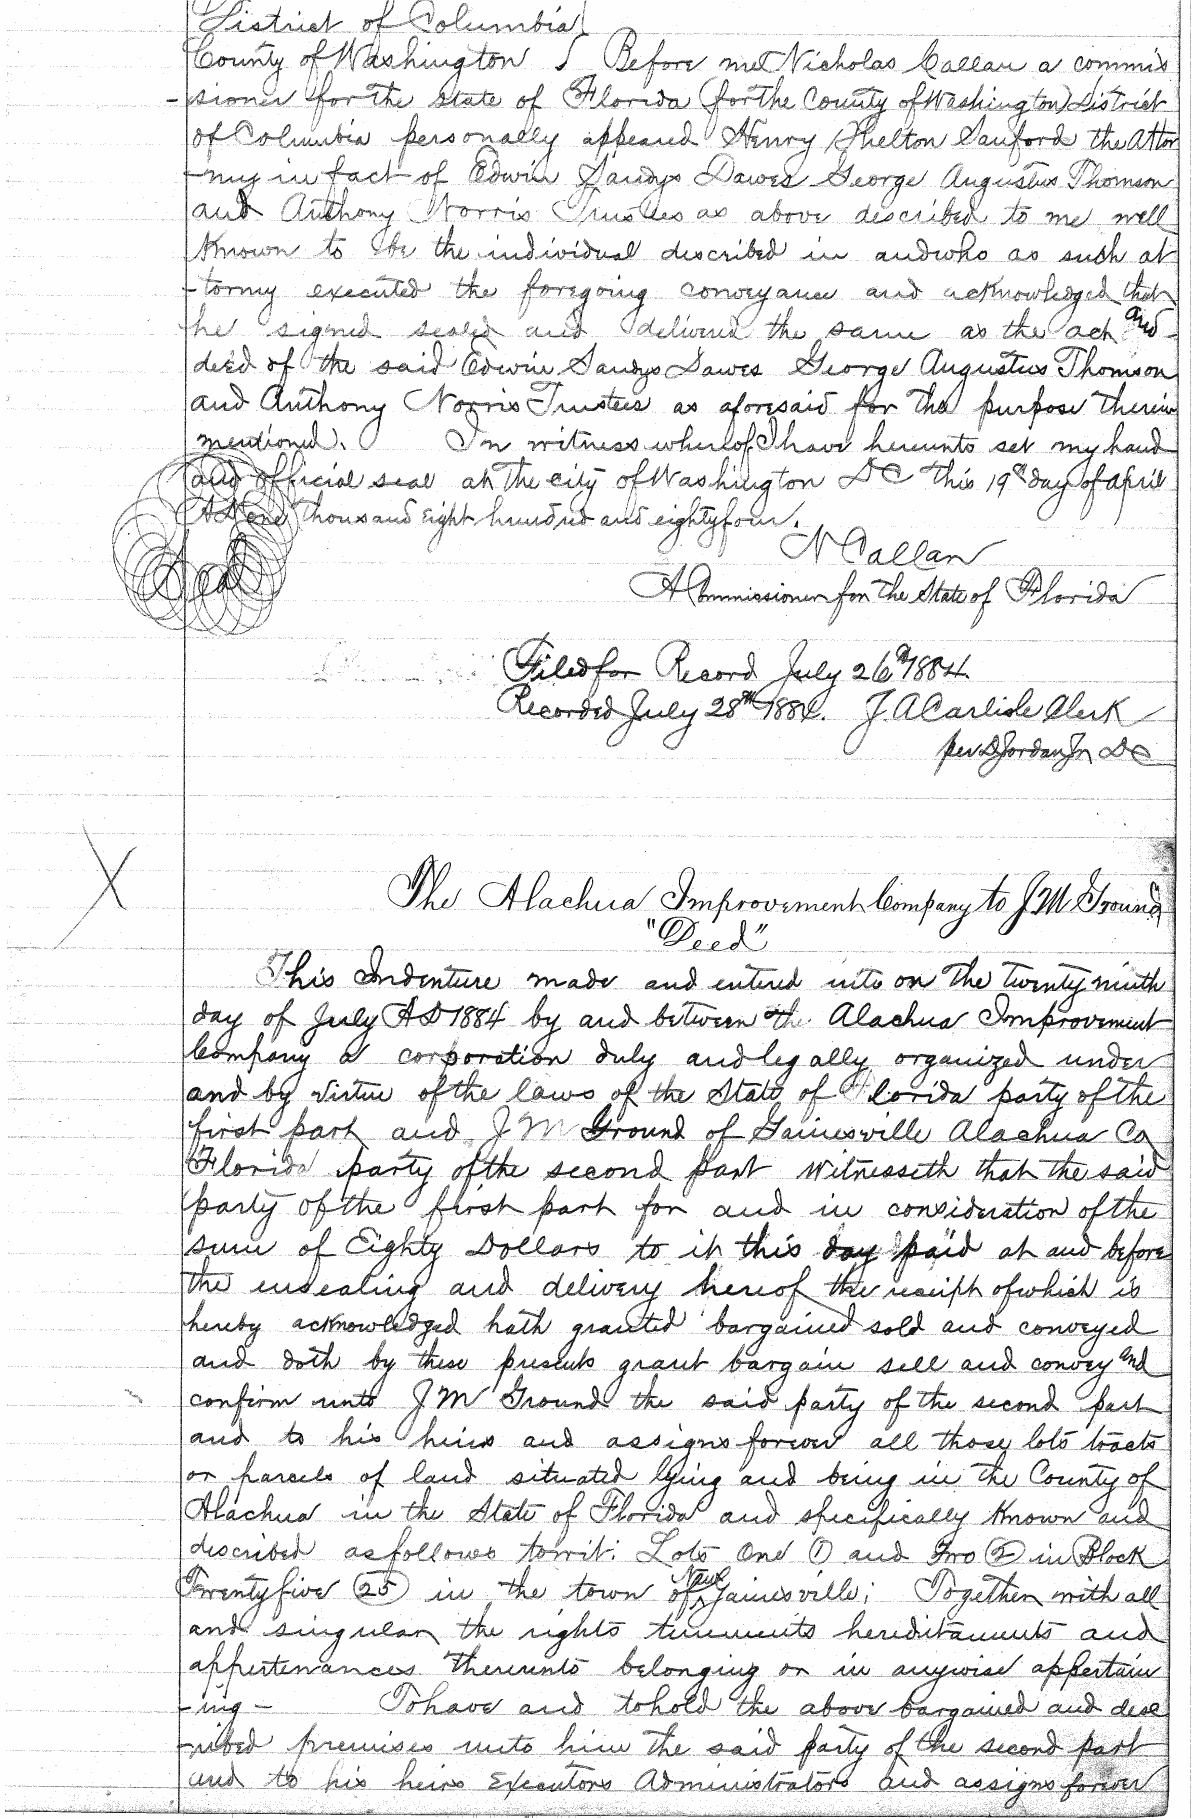 District of Columbia
County of Washington } Before me Nicholas Callan a commis
-sioner for the State of Florida (for the County of Washington) District
of Columbia personally appeared Henry Shelton Sanford the Attor
-ney in fact of Edwin Sandys Dawes George Augustus Thomson
and Anthony Norris Trustees as above described to me well
Known to be the individual described in and who as such at
-torney executed the foregoing conveyance and acknowledged that
he signed sealed and delivered the same as the act and
deed of the said Edwin Sandys Dawes George Augustus Thomson
and Anthony Norris Trustees as aforesaid for the purpose therein
mentioned. In witness whereof I have hereunto set my hand
and official seal at the city of Washington DC this 19th day of April
AD One Thousand Eight hundred and eightyfour.
Seal
N Callan
A Commissioner for the State of Florida
Filed for Record July 26th 1884.
Recorded July 28th 1884. J. A Carlisle Clerk
per D Jordan Jr DC
X
The Alachua Improvement Company to J M Ground
"Deed"
This Indenture made and entered into on the twenty ninth
day of July AD 1884 by and between the Alachua Improvement
Company a corporation duly and legally organized under
and by virtue of the laws of the State of Florida party of the
first part and J M Ground of Gainesville Alachua Co
Florida party of the second part Witnesseth that the said
party of the first part for and in consideration of the
sum of Eighty Dollars to it this day paid at and before
the ensealing and delivery hereof the receipt of which is
hereby acknowledged hath granted bargained sold and conveyed
and doth by these presents grant bargain sell and convey and
confirm unto J M Ground the said party of the second part
and to his heirs and assigns forever all those lots tracts
or parcels of land situated lying and being in the County of
Alachua in the State of Florida and specifically Known and
described as follows towit: Lots One (1) and Two (2) in Block
Twentyfive (25) in the town of New Gainesville; Together with all
and singular the rights tenements hereditaments and
appertenances thereunto belonging or in anywise appertain
-ing- To have and to hold the above bargained and desc
-ribed premises unto him the said party of the second part
and to his heirs Executors Administrators and assigns forever